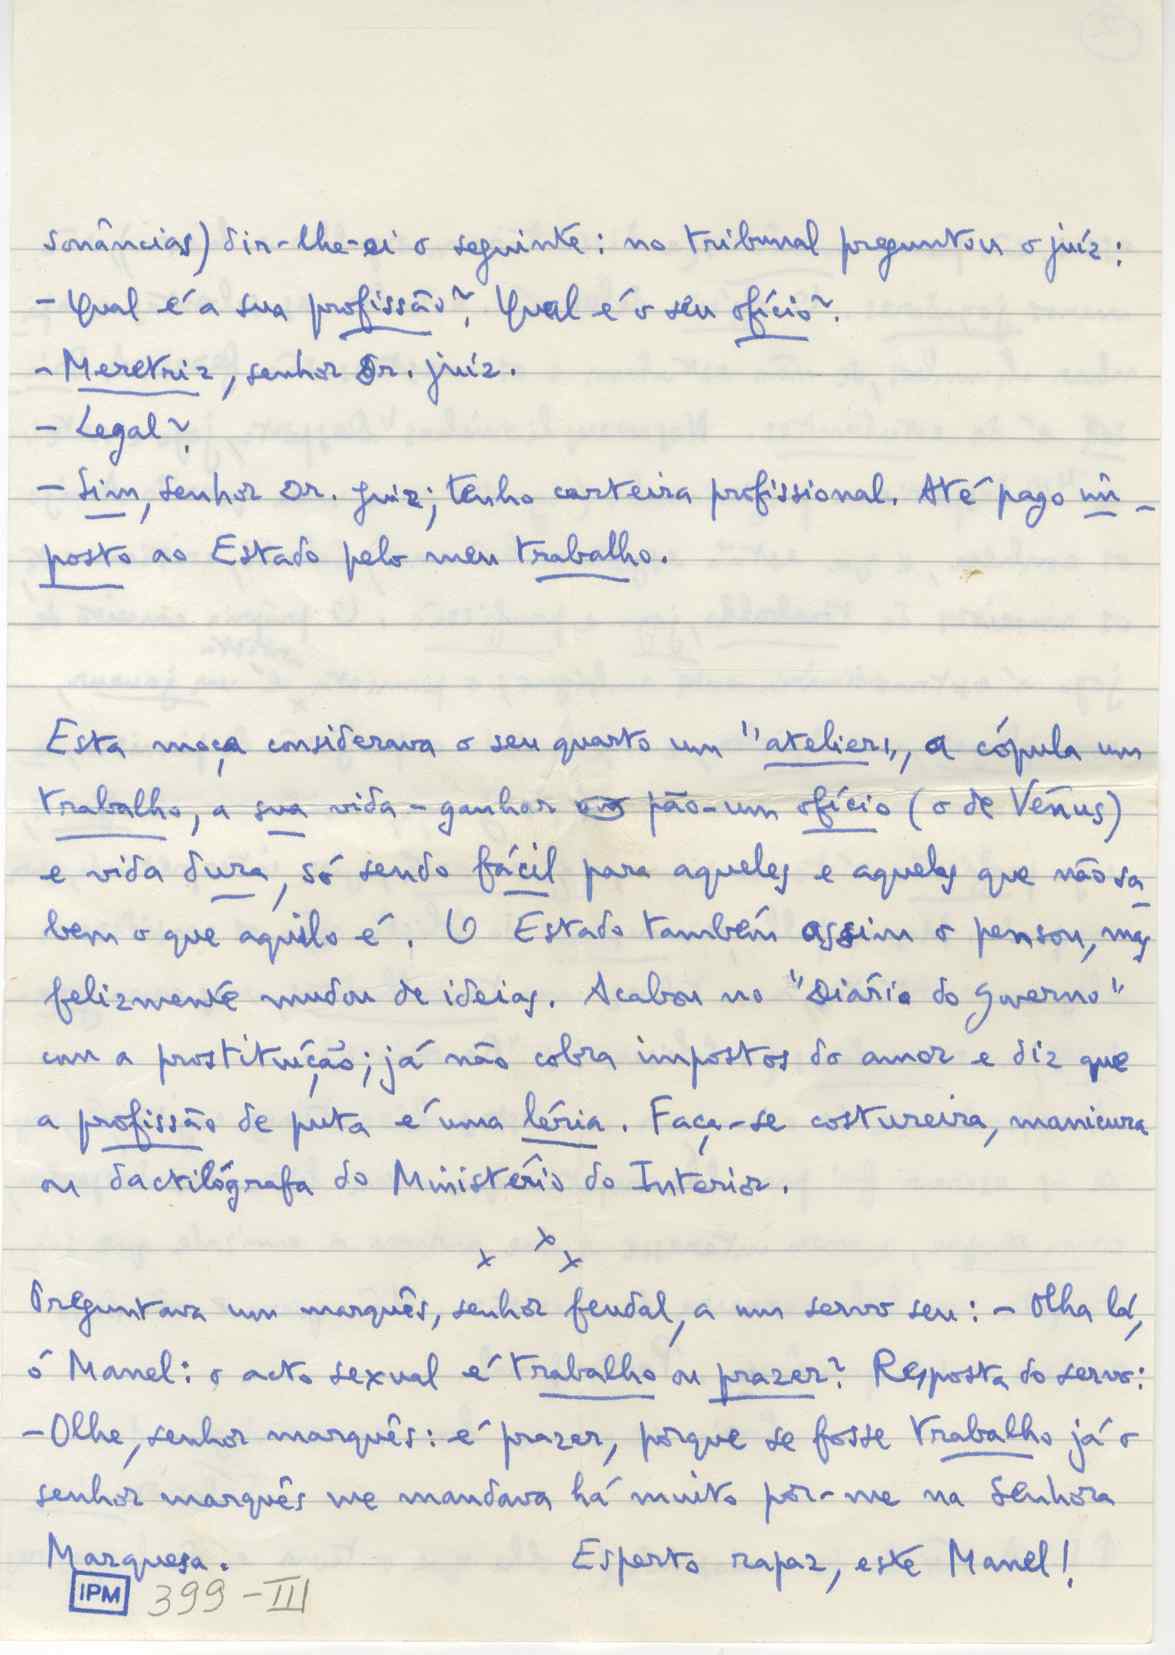 sonâncias) dir-lhe-ei o seguinte: no tribunal preguntou o juíz:
- Qual é a sua profissão? Qual é o seu ofício?
- Meretriz, senhor Dr. juíz.
- Legal?
- Sim, senhor Dr. juiz; tenho carteira profissional. Até pago im-
posto ao Estado pelo meu trabalho.
Esta moça considerava o seu quarto um "atelier", a cópula um
trabalho, a sua vida - ganhar pão - um ofício (o de Vénus)
e vida dura, só sendo fácil para aqueles e aquelas que não sa
bem o que aquilo é. O Estado também assim o pensou, mas
felizmente mudou de ideias. Acabou no "Diário do Governo"
com a prostituíção; já não cobra impostos do amor e diz que
a profissão de puta é uma léria. Faça-se costureira, manicura
ou dactilógrafa do Ministério do Interior.
x x x
Preguntava um marquês, senhor feudal, a um servo seu: - Olha lá,
ó Manel: o acto sexual é trabalho ou prazer? Resposta do servo:
- Olhe, senhor marquês: é prazer, porque se fosse trabalho já o
senhor marquês me mandava há muito pôr-me na Senhora
Marquesa. Esperto rapaz, este Manel!
IPM 399-III